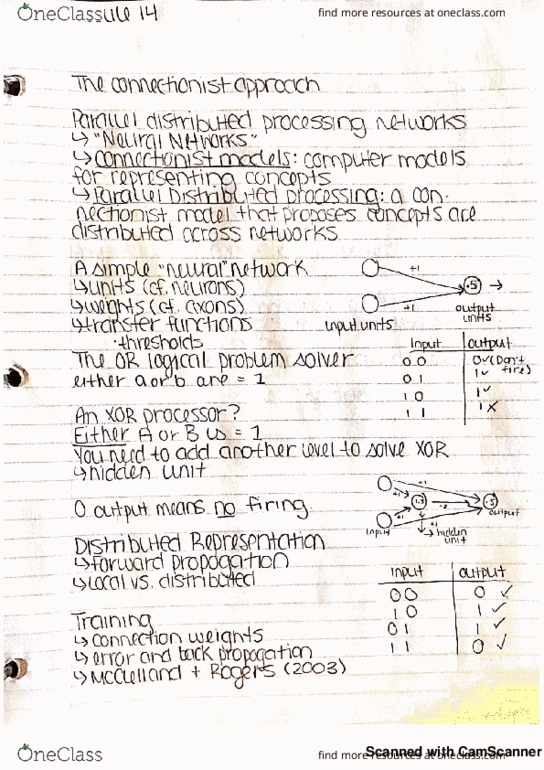 OneClass
ule 14
find more resources at oneclass.com
The connectionist approach
Parallel distributed processing networks
↳ "Neural Networks"
↳ connectionist models: computer models
for representing concepts
↳ Parallel Distributed processing: a con-
nectionist model that proposes concepts are
distributed across networks
A simple "neural" network
↳ units (cf. neurons)
↳ weights (cf. axons)
↳ transfer functions
· thresholds
+1
+1
.5 →
input units
output
units
The OR logical problem solver
either a or b are = 1
input output
0 0 0 ✓ (Don't fire)
0 1 1 ✓
1 0 1 ✓
1 1 1 X
An XOR processor?
Either A or B is = 1
You need to add another level to solve XOR
↳ hidden unit
0 output means no firing
+1
+1
1.5
-2
.5
+1
+1
input
→ hidden
unit
output
Distributed Representation
↳ forward propagation
↳ Local vs. distributed
input output
0 0 0 ✓
1 0 1 ✓
0 1 1 ✓
1 1 0 ✓
Training
↳ connection weights
↳ error and back propagation
↳ McClelland + Rogers (2003)
OneClass
find more resources at oneclass.com
Scanned with CamScanner